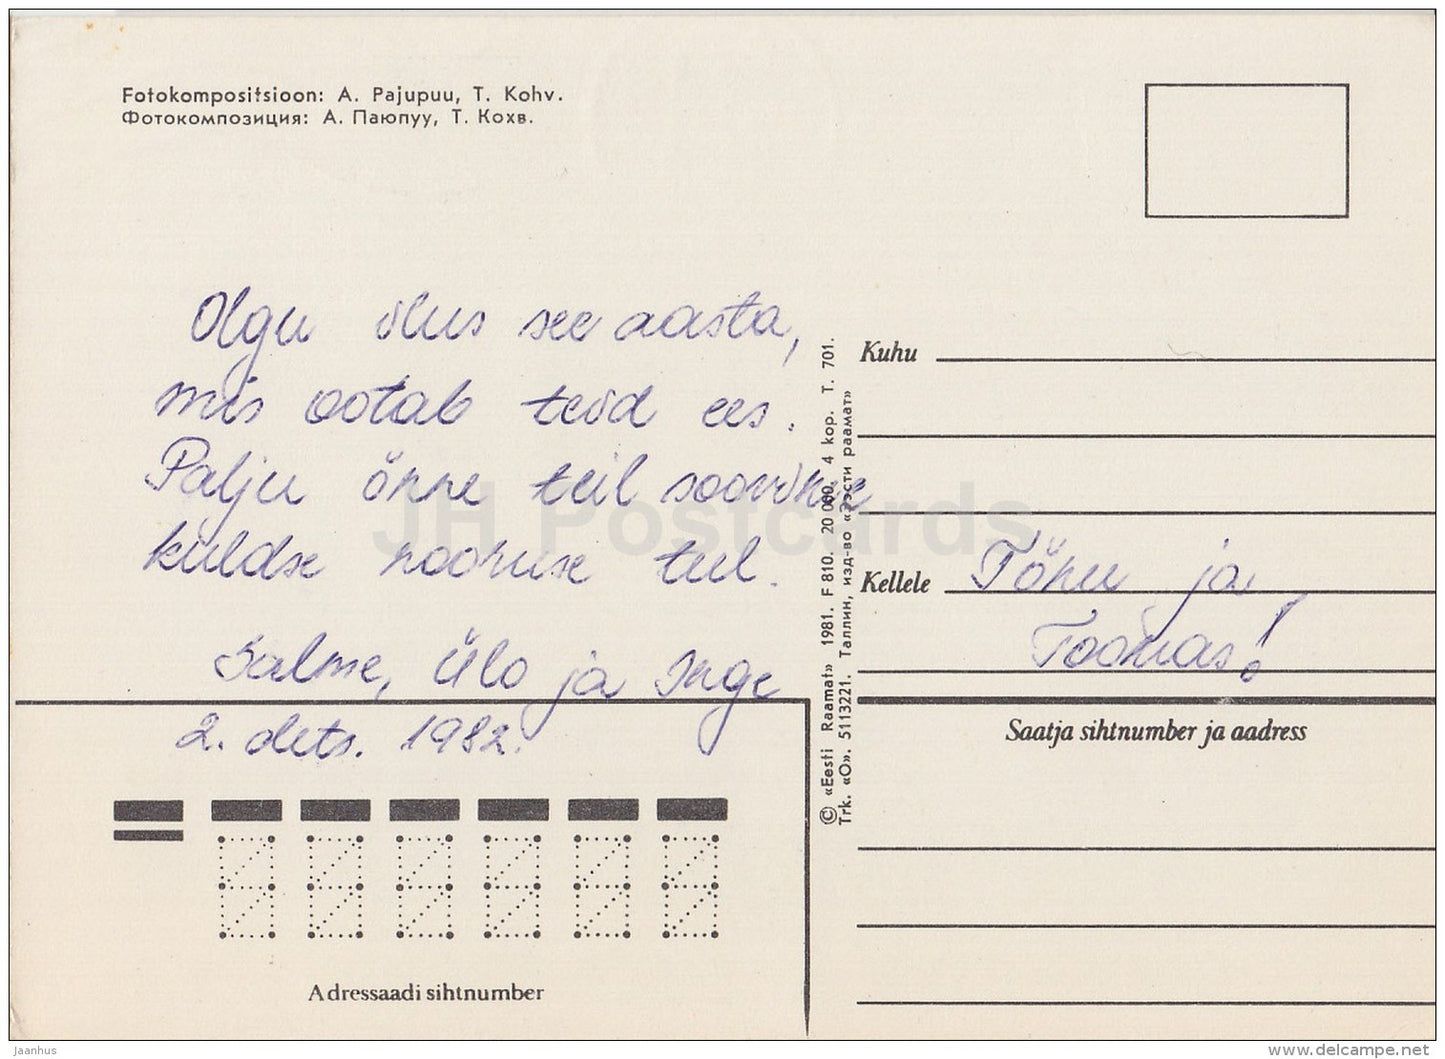 Fotokompositsioon: A. Pajupuu, T. Kohv.
Фотокомпозиция: А. Паюпуу, Т. Кохв.
Olgu ilus see aasta,
mis ootab teid ees.
Palju õnne teil soovime
kuldse nooruse teel.
Salme, Ülo ja Inge
2. dets. 1982.
Adressaadi sihtnumber
© «Eesti Raamat» 1981. F 810. 20 000. 4 kop. T. 701.
Trk. «O». 5113221. Таллин, изд-во «Ээсти раамат»
Kuhu
Kellele Tõnu ja
Toomas!
Saatja sihtnumber ja aadress
JH Postcards
jaanhus
delcampe.net